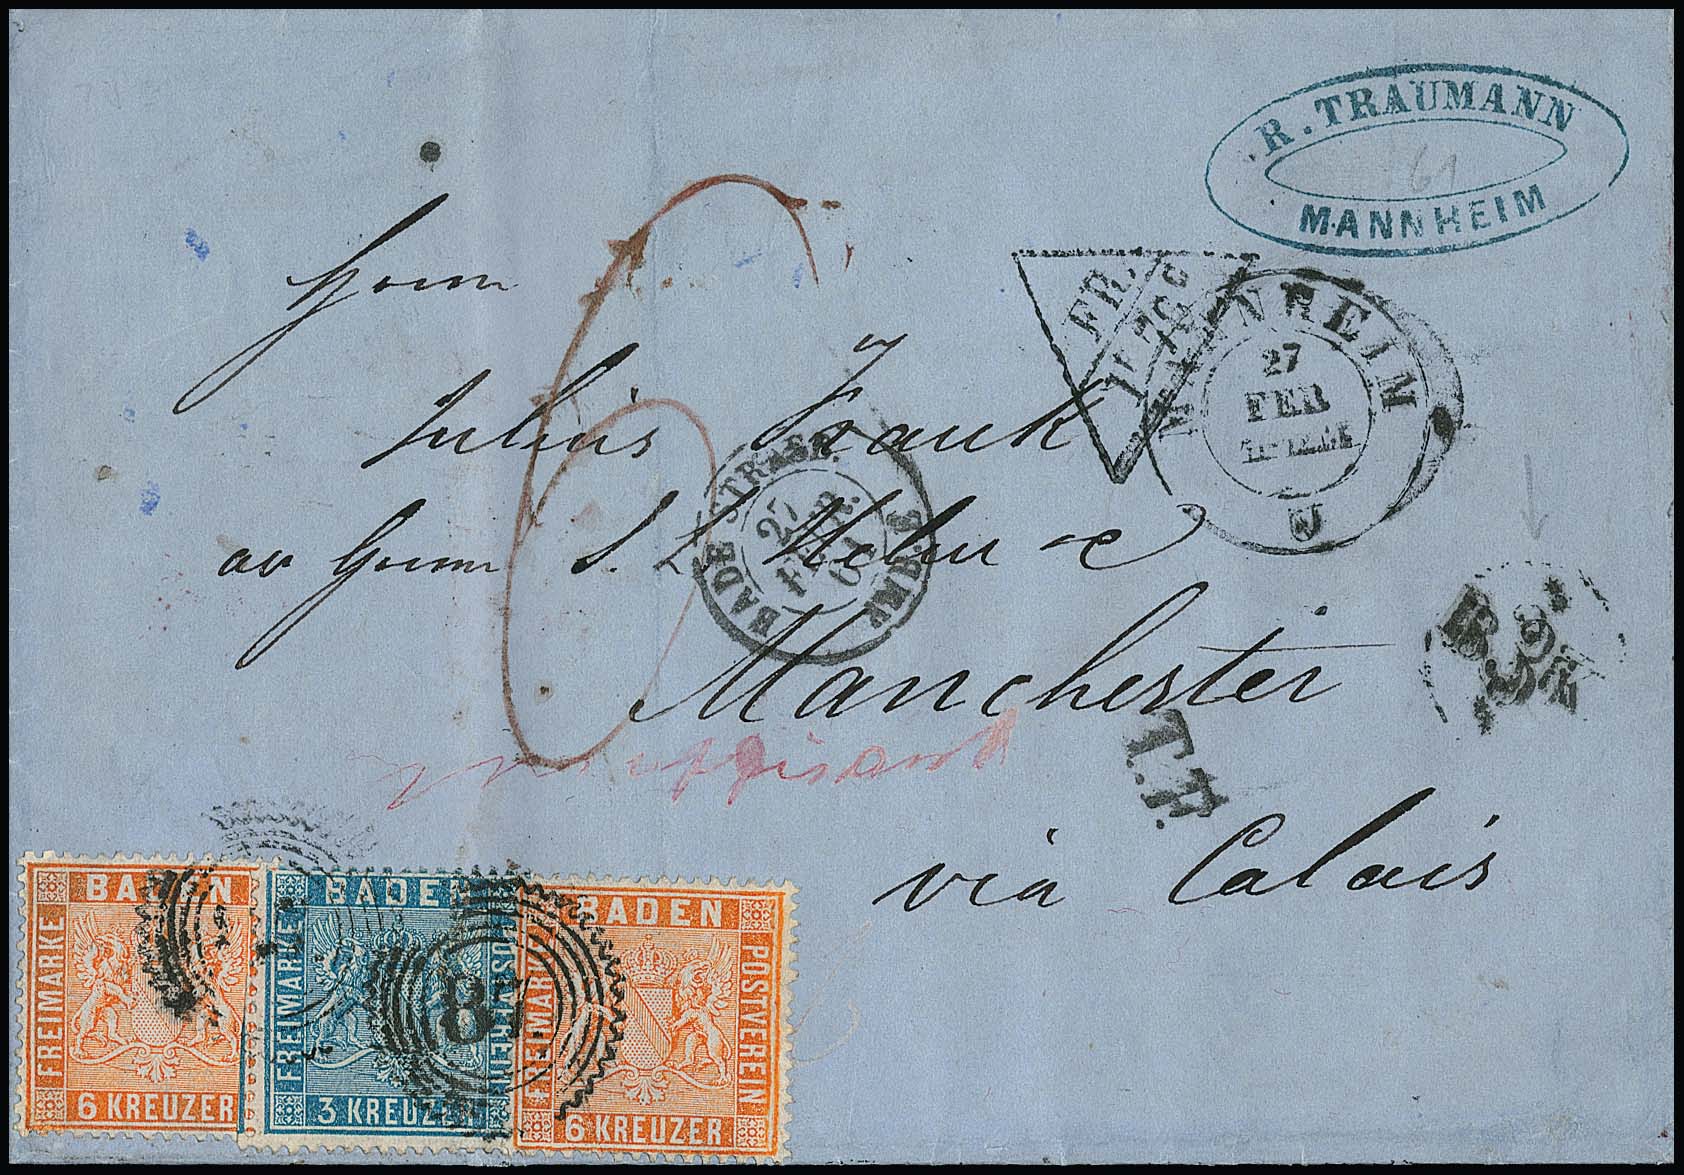 R. TRAUMANN
61
MANNHEIM
FR.
MANNHEIM
27
FEB
Herrn
Julius Frank
BADE STRASB.
27
FEVR.
61
AMB. E
S. L.
Manchester
insuffisant
T.P.
via Calais
BADEN
FREIMARKE
6 KREUZER
BADEN
FREIMARKE
POSTVEREIN
3 KREUZER
87
BADEN
FREIMARKE
POSTVEREIN
6 KREUZER